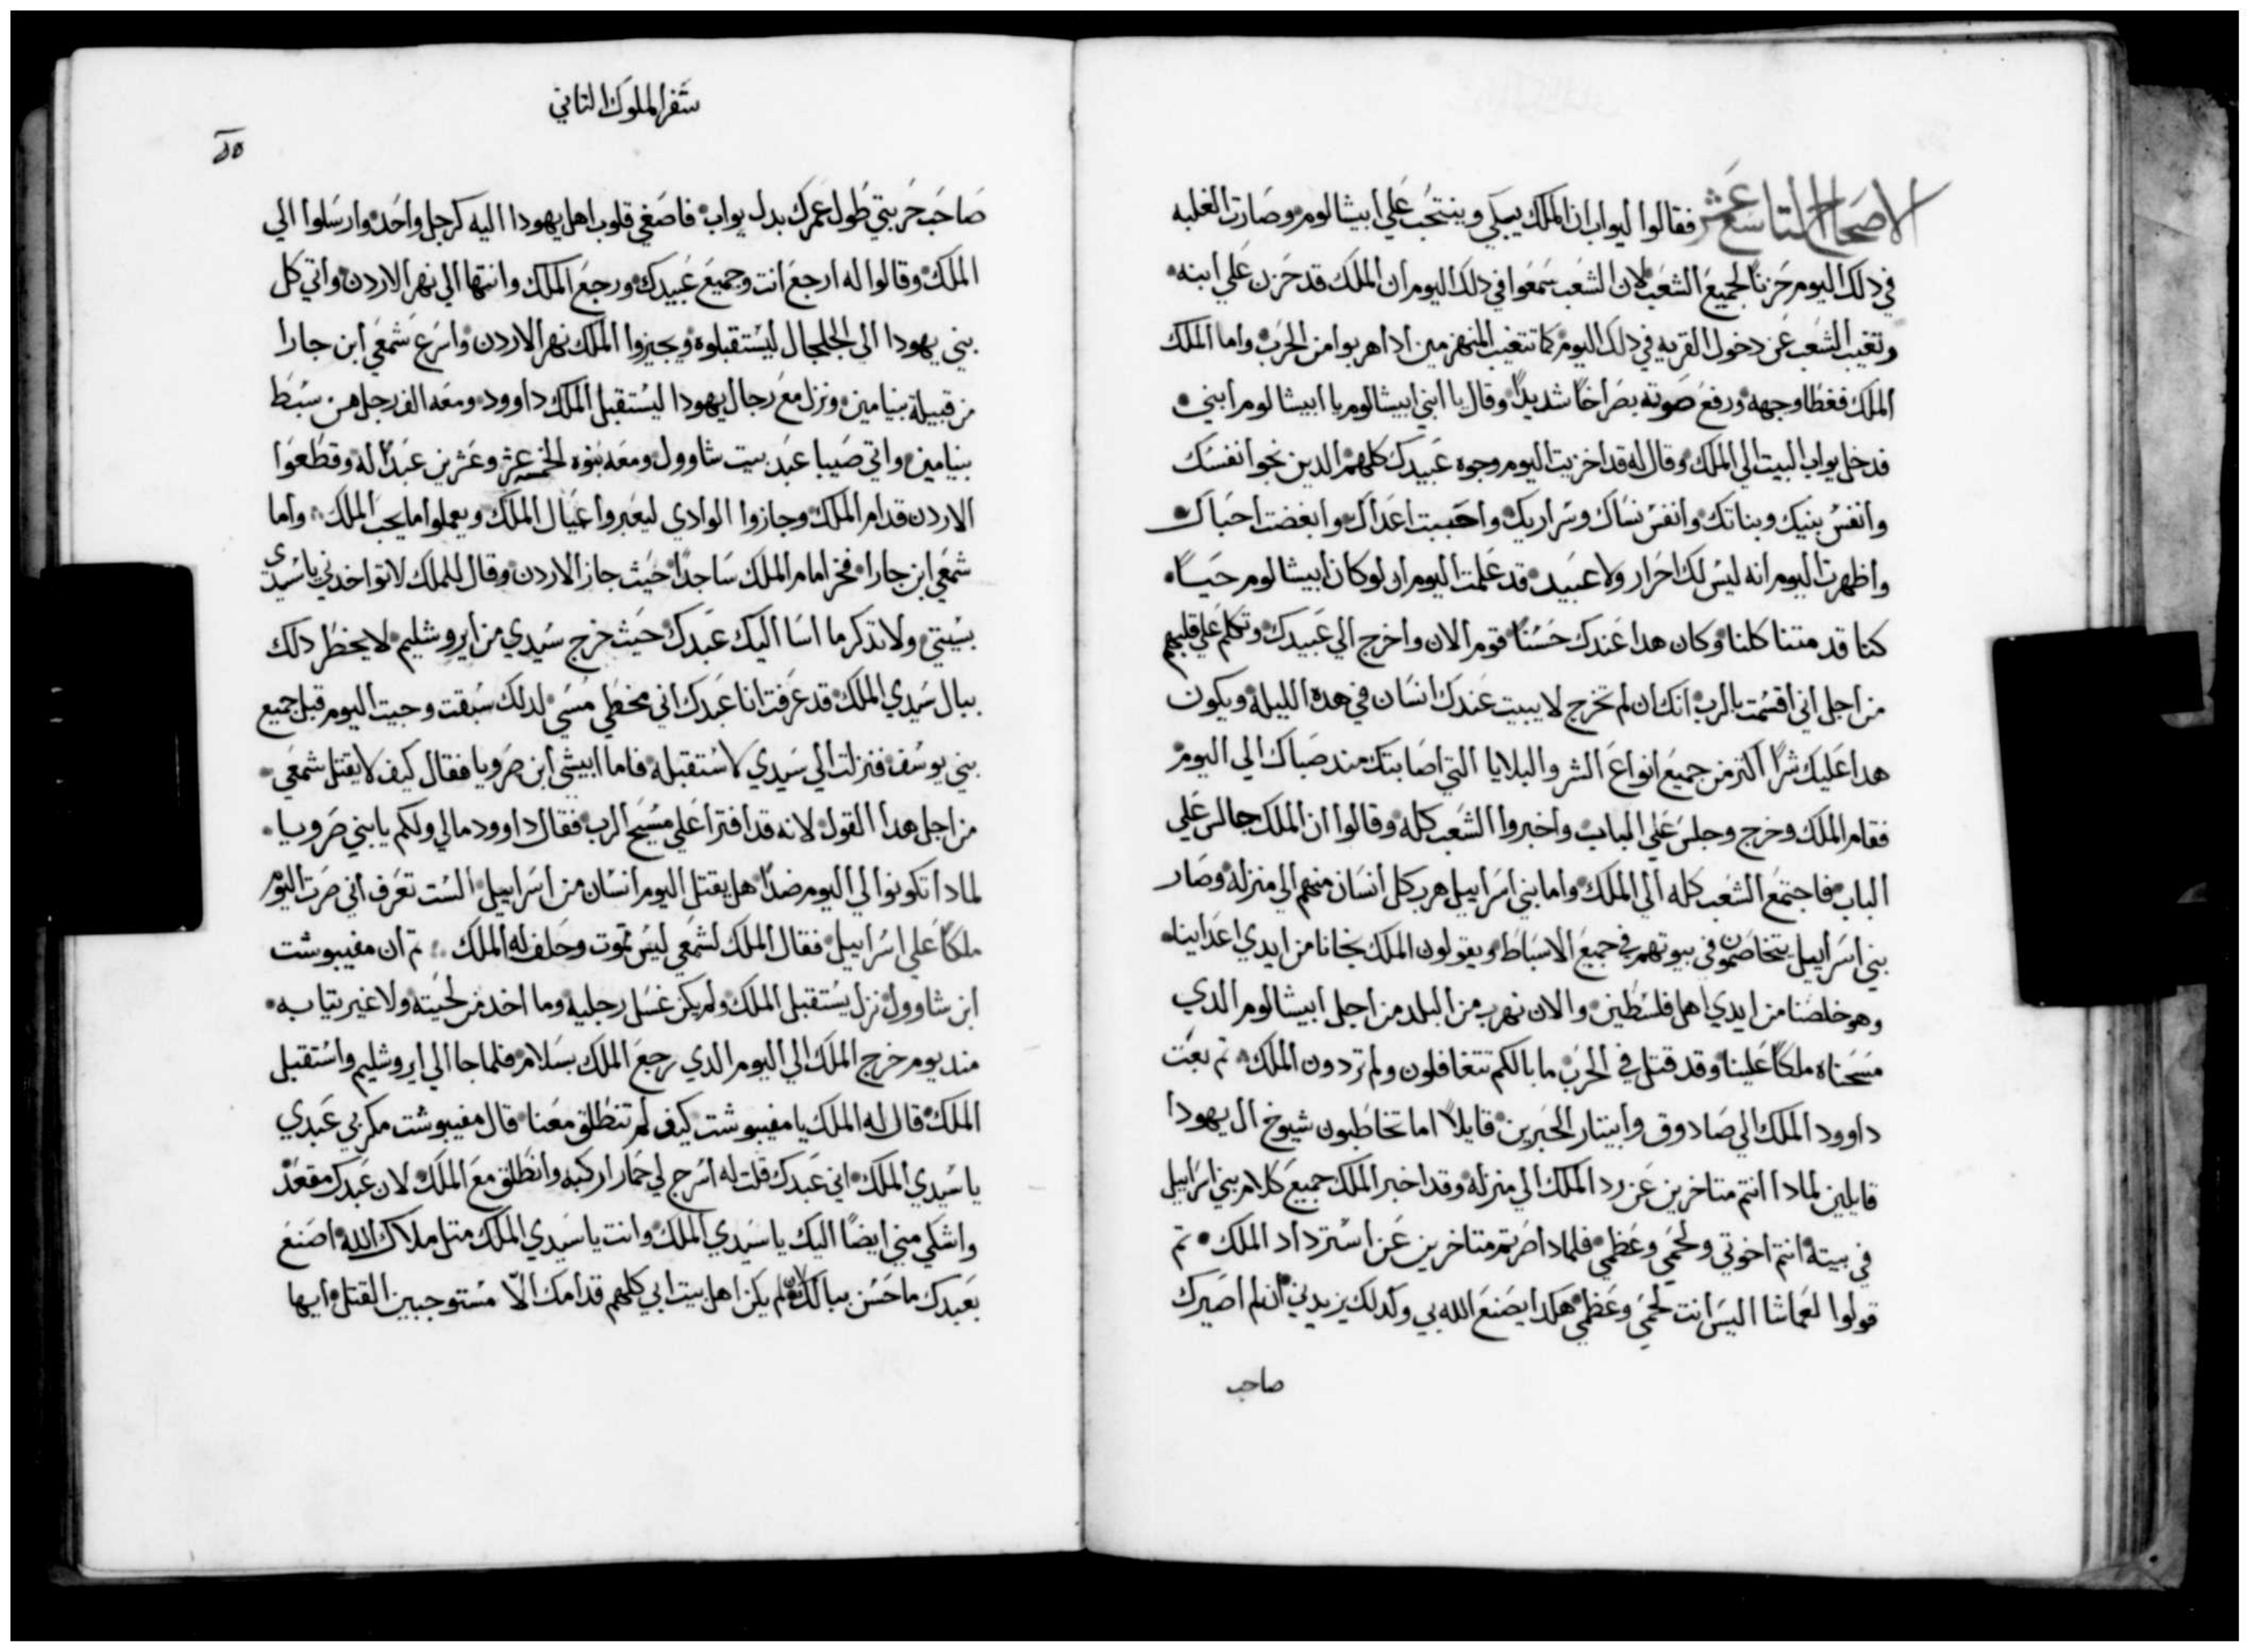 الاصحاح التاسع عشر فقالوا ليواب ان الملك يبكي وينتحب علي ابيشالوم وصارت الغلبه
في دلك اليوم حزنا لجميع الشعب لان الشعب سمعوا في دلك اليوم ان الملك قد حزن علي ابنه
وتغيب الشعب عن دخول القريه في دلك اليوم كما تتغيب المنهزمين ادا هربوا من الحرب واما الملك
الملك فغطا وجهه ورفع صوته بصراخا شديدا وقال يا ابني ابيشالوم يا ابيشالوم ابني
فدخل يواب البيت الي الملك وقال له قد اخزيت اليوم وجوه عبيدك كلهم الدين نجوا نفسك
وانفس بنيك وبناتك وانفس نساك وسراريك واحببت اعداك وابغضت احباك
واظهرت اليوم انه ليس لك احرار ولا عبيد قد علمت اليوم ان لو كان ابيشالوم حيا
كنا قد متنا كلنا وكان هدا عندك حسنا قوم الان واخرج الي عبيدك وتكلم علي قلبهم
من اجل اني اقسمت بالرب انك ان لم تخرج لا يبيت عندك انسان في هده الليلة ويكون
هدا عليك شرا اكتر من جميع انواع الشر والبلايا التي اصابتك مند صباك الي اليوم
فقام الملك وخرج وجلس علي الباب واخبروا الشعب كله وقالوا ان الملك جالس علي
الباب فاجتمع الشعب كله الي الملك واما بني اسراييل هرب كل انسان منهم الي منزله وصار
بني اسراييل يتخاصمون في بيوتهم في جميع الاسباط ويقولون الملك نجانا من ايدي اعداينا
وهو خلصنا من ايدي اهل فلسطين والان نهرب من البلد من اجل ابيشالوم الدي
مسحناه ملكا علينا وقد قتل في الحرب ما بالكم تتغافلون ولم تردون الملك تم بعت
داوود الملك الي صادوق وابيتار الحبرين قايلا اما تخاطبون شيوخ ال يهودا
قايلين لمادا انتم متاخرين عن رد الملك الي منزله وقد اخبر الملك جميع كلام بني اسراييل
في بيته انتم اخوتي ولحمي وعظمي فلمادا صرتم متاخرين عن استرداد الملك تم
قولوا لعماشا اليس انت لحمي وعظمي هكدا يصنع الله بي وكدلك يزيدني ان لم اصيرك
صاحب
سفر الملوك التاني
صاحب حربتي طول عمرك بدل يواب فاصغي قلوب اهل يهودا اليه كرجل واحد وارسلوا الي
الملك وقالوا له ارجع انت وجميع عبيدك ورجع الملك وانتها الي نهر الاردن واتي كل
بني يهودا الي الجلجال ليستقبلوه ويجيزوا الملك نهر الاردن واسرع شمعي ابن جارا
من قبيلة بنيامين ونزل مع رجال يهودا ليستقبل الملك داوود ومعه الف رجل من سبط
بنيامين واتي صيبا عبد بيت شاوول ومعه بنوه الخمسه عشر وعشرين عبدا له وقطعوا
الاردن قدام الملك وجازوا الوادي ليعبروا عيال الملك ويعملوا ما يحب الملك واما
شمعي ابن جارا فخر امام الملك ساجدا حيث جاز الاردن وقال للملك لا تواخدني يا سيدي
بسيتي ولا تدكر ما اسا اليك عبدك حيث خرج سيدي من ايروشليم لا يخطر دلك
ببال سيدي الملك قد عرفت انا عبدك اني مخطي مسي لدلك سبقت وجيت اليوم قبل جميع
بني يوسف فنزلت الي سيدي لاستقبله فاما ابيشي ابن صرويا فقال كيف لا يقتل شمعي
من اجل هدا القول لانه قد افترا علي مسيح الرب فقال داوود ما لي ولكم يا بني صرويا
لمادا تكونوا لي اليوم ضدا هل يقتل اليوم انسان من اسراييل الست تعرف اني صرت اليوم
ملكا علي اسراييل فقال الملك لشمعي ليس تموت وحلف له الملك تم ان مفيبوشت
ابن شاوول نزل يستقبل الملك ولم يكن غسل رجليه وما اخد من لحيته ولا غير تيابه
مند يوم خرج الملك الي اليوم الدي رجع الملك بسلام فلما جا الي ايروشليم واستقبل
الملك قال له الملك يا مفيبوشت كيف لم تنطلق معنا قال مفيبوشت مكر بي عبدي
يا سيدي الملك اني عبدك قلت له اسرج لي حمار اركبه وانطلق مع الملك لان عبدك مقعد
واشكي مني ايضا اليك يا سيدي الملك وانت يا سيدي الملك متل ملاك الله اصنع
بعبدك ما حسن ببالك لم يكن اهل بيت ابي كلهم قدامك الا مستوجبين القتل ايها